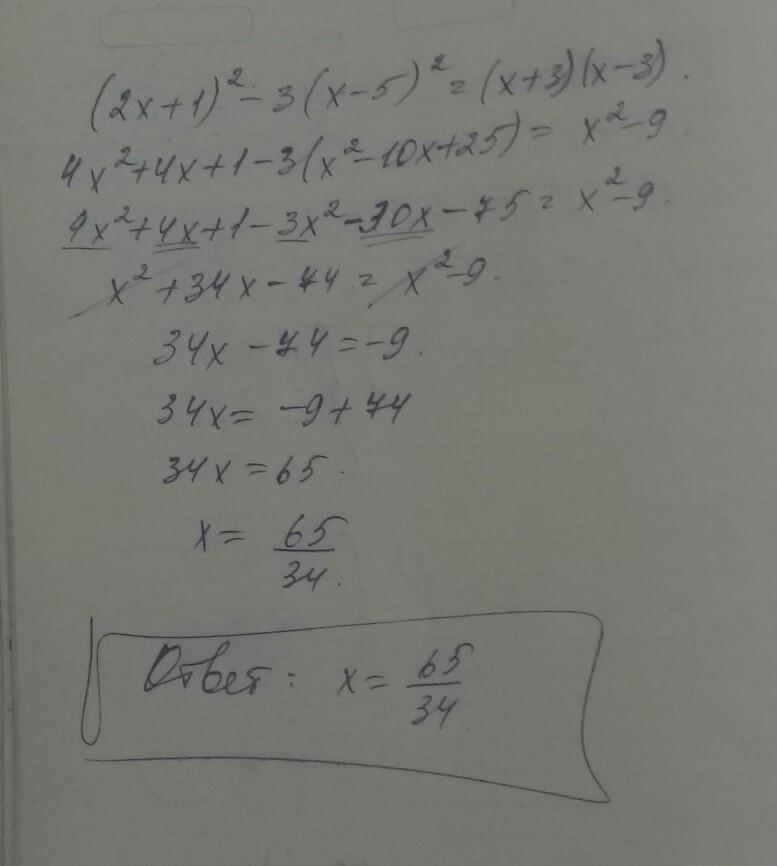 (2x+1)² - 3(x-5)² = (x+3)(x-3).
4x²+4x+1-3(x²-10x+25) = x²-9
4x²+4x+1-3x²-30x-75 = x²-9.
x²+34x-74 = x²-9.
34x-74=-9.
34x= -9+74
34x=65.
x= 65/34.
Ответ: x= 65/34